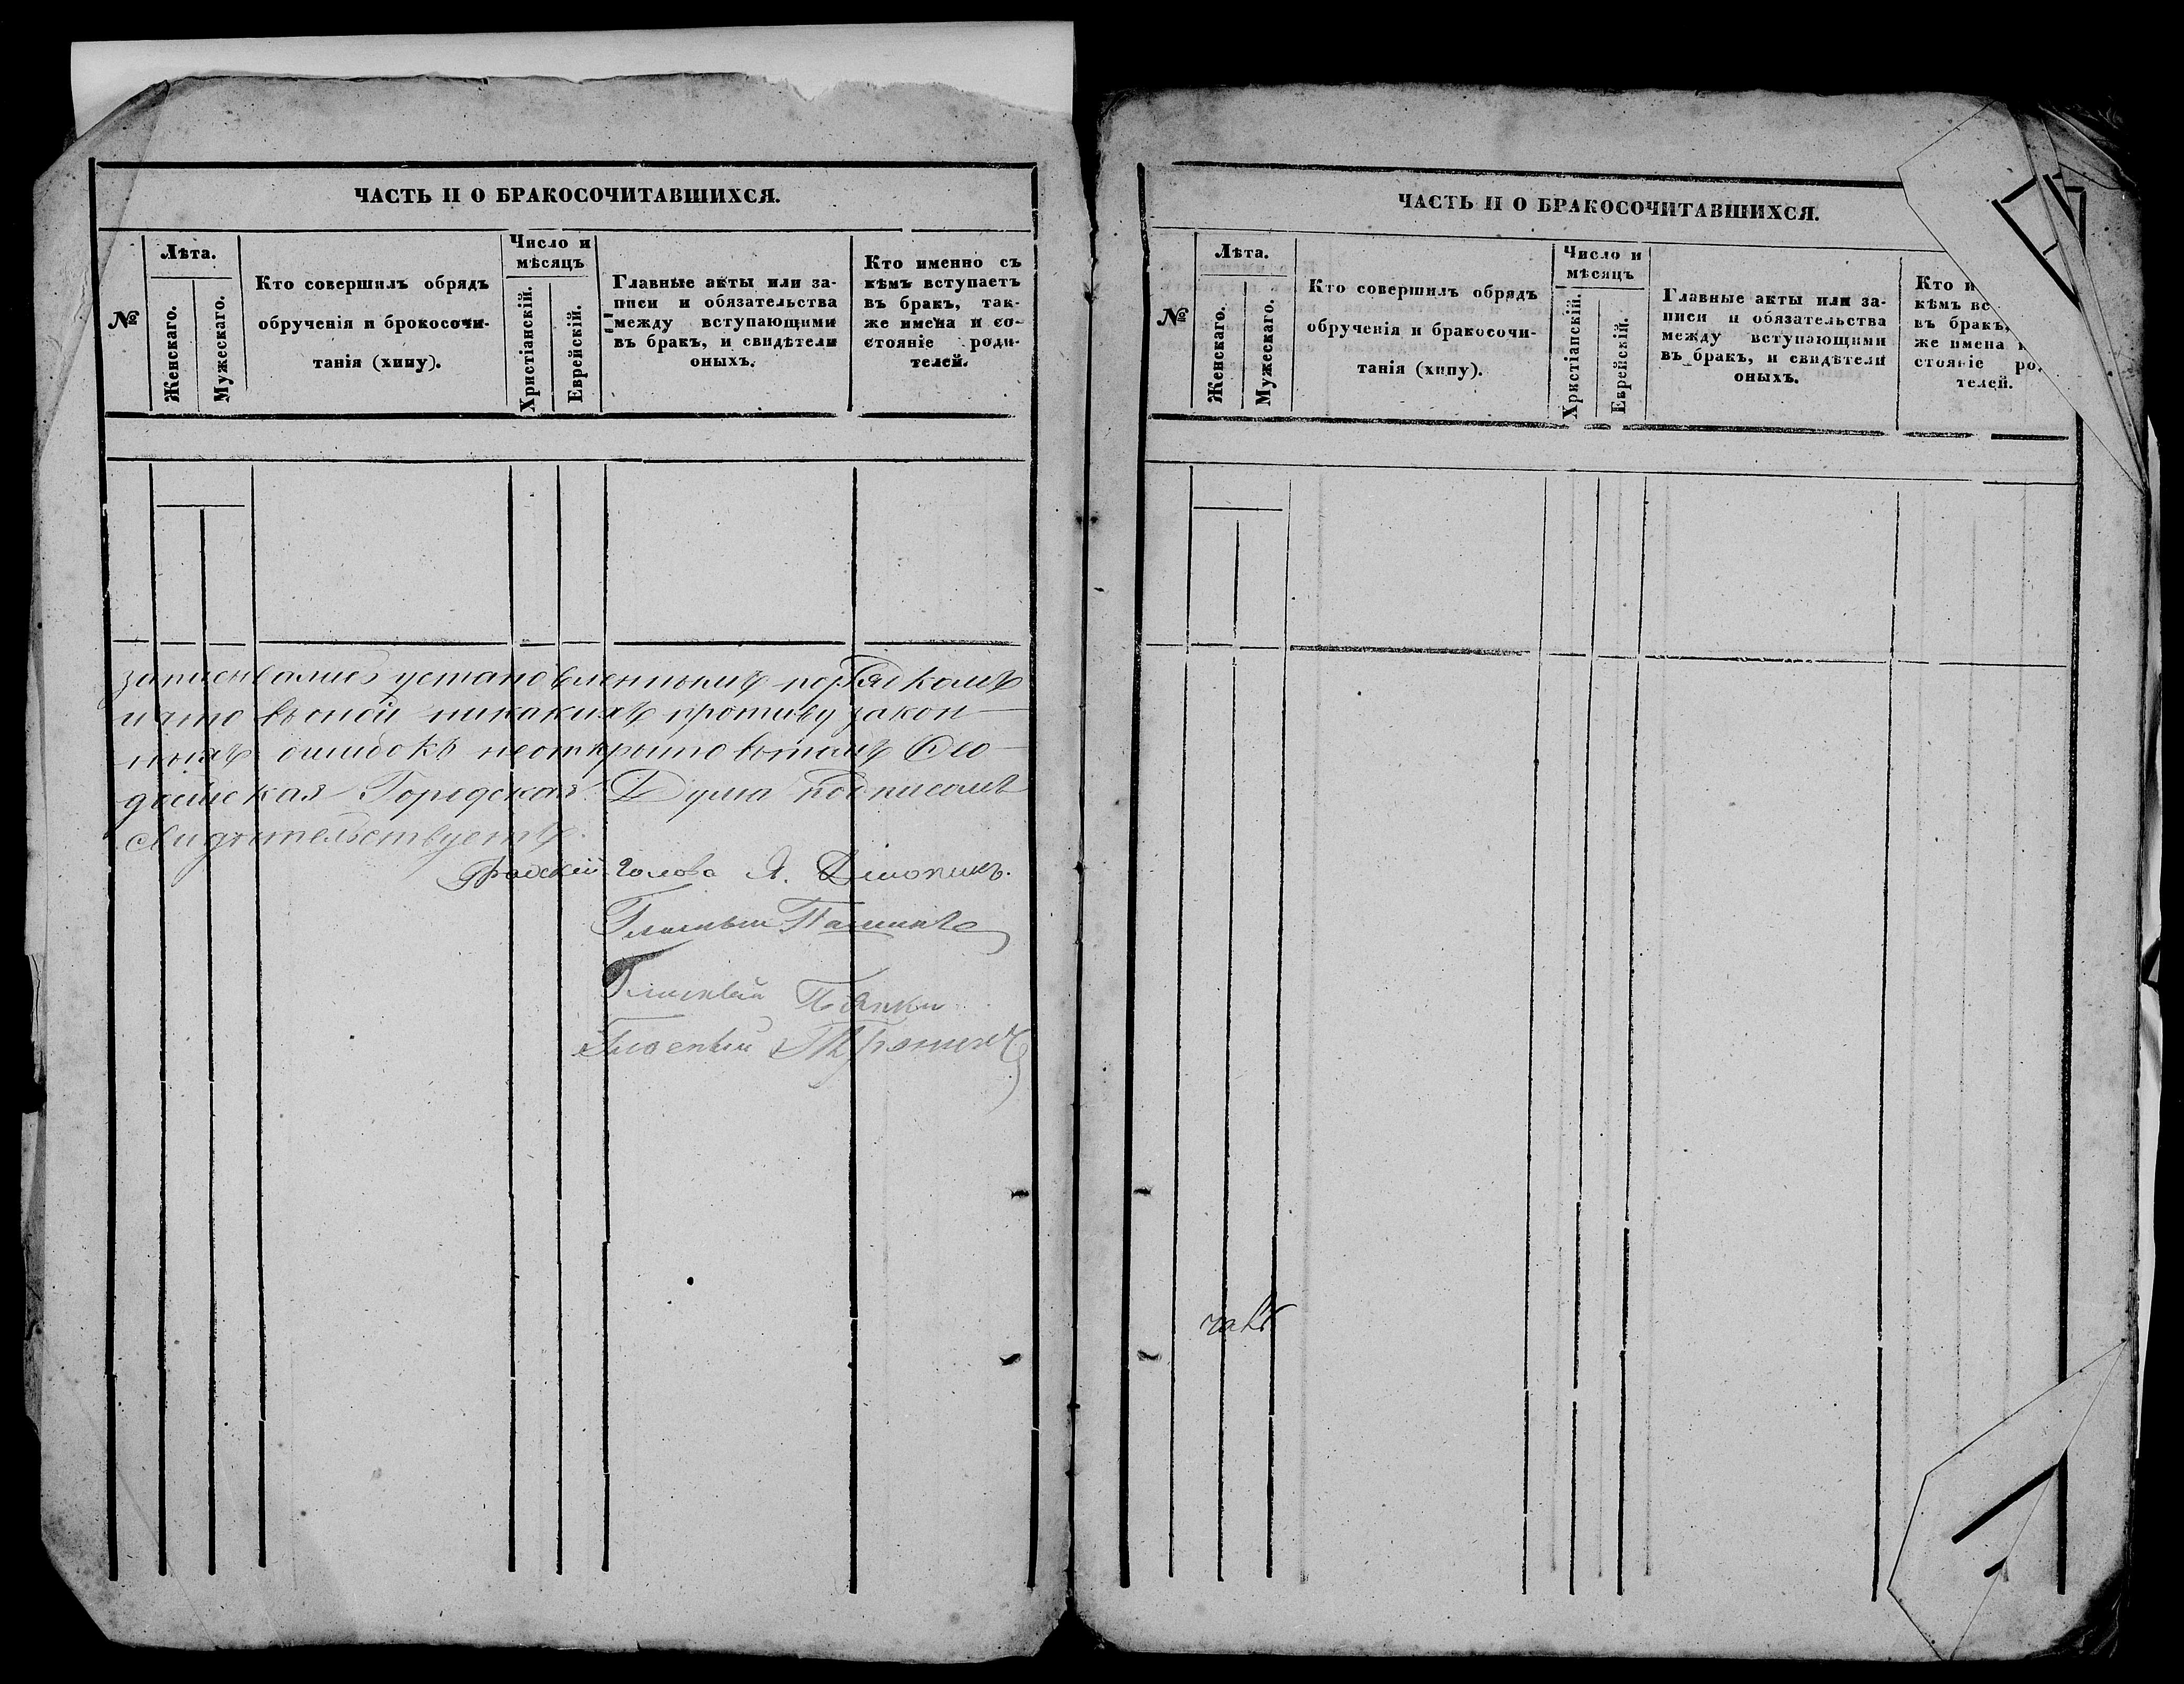 ЧАСТЬ II О БРАКОСОЧИТАВШИХСЯ.
№
Лѣта.
Женскаго.
Мужескаго.
Кто совершилъ обрядъ
обрученія и брокосочи-
танія (хипу).
Число и
мѣсяцъ
Христіанскій.
Еврейскій.
Главные акты или за-
писи и обязательства
между вступающими
въ бракъ, и свидѣтели
оныхъ.
Кто именно съ
кѣмъ вступаетъ
въ бракъ, так-
же имена и со-
стояніе роди-
телей.
записывались установленнымъ порядкомъ
и что въ оной никакихъ противу закон-
ныхъ ошибокъ неоткрыто вътомъ Ѳео-
досійская Городская Дума подписомъ
свидѣтельствуетъ.
Градскій Голова
Гласный
Гласный
Гласный
ЧАСТЬ II О БРАКОСОЧИТАВШИХСЯ.
№
Лѣта.
Женскаго.
Мужескаго.
Кто совершилъ обрядъ
обрученія и бракосочи-
танія (хипу).
Число и
мѣсяцъ
Христіанскій.
Еврейскій.
Главные акты или за-
писи и обязательства
между вступающими
въ бракъ, и свидѣтели
оныхъ.
Кто и
кѣмъ вс
въ бракъ,
же имена
стояніе ро
телей.